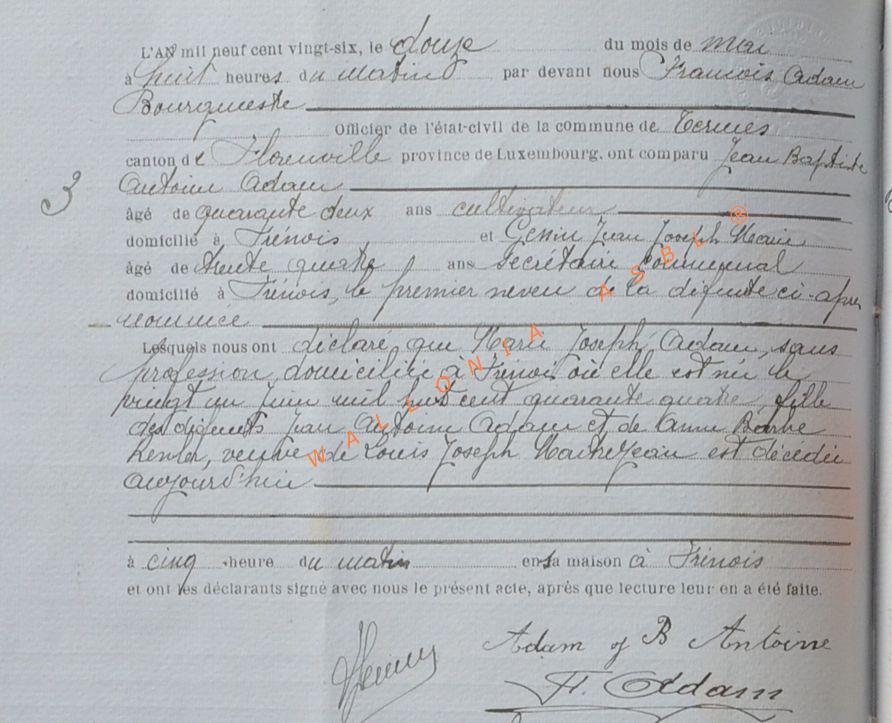 L'AN mil neuf cent vingt-six, le douze du mois de mai
à huit heures du matin par devant nous François Adam
Bourgmestre
Officier de l'état-civil de la commune de Termes
canton de Florenville province de Luxembourg, ont comparu Jean Baptiste
Antoine Adam
3
âgé de quarante deux ans cultivateur
domicilié à Frénois et Genin Jean Joseph
âgé de trente quatre ans secrétaire communal
domicilié à Frénois, le premier neveu de la défunte ci-après
nommée
Lesquels nous ont déclaré que Marie Joseph Adam, sans
profession, domiciliée à Frenois où elle est née le
vingt un juin mil huit cent quarante quatre, fille
des défunts Jean Antoine Adam et de Anne Barbe
veuve de Louis Joseph est décédée
aujourd'hui
à cinq heure du matin en sa maison à Frénois
et ont les déclarants signé avec nous le présent acte, après que lecture leur en a été faite.
Adam J B Antoine
F. Adam
WALLONIA ASBL ®